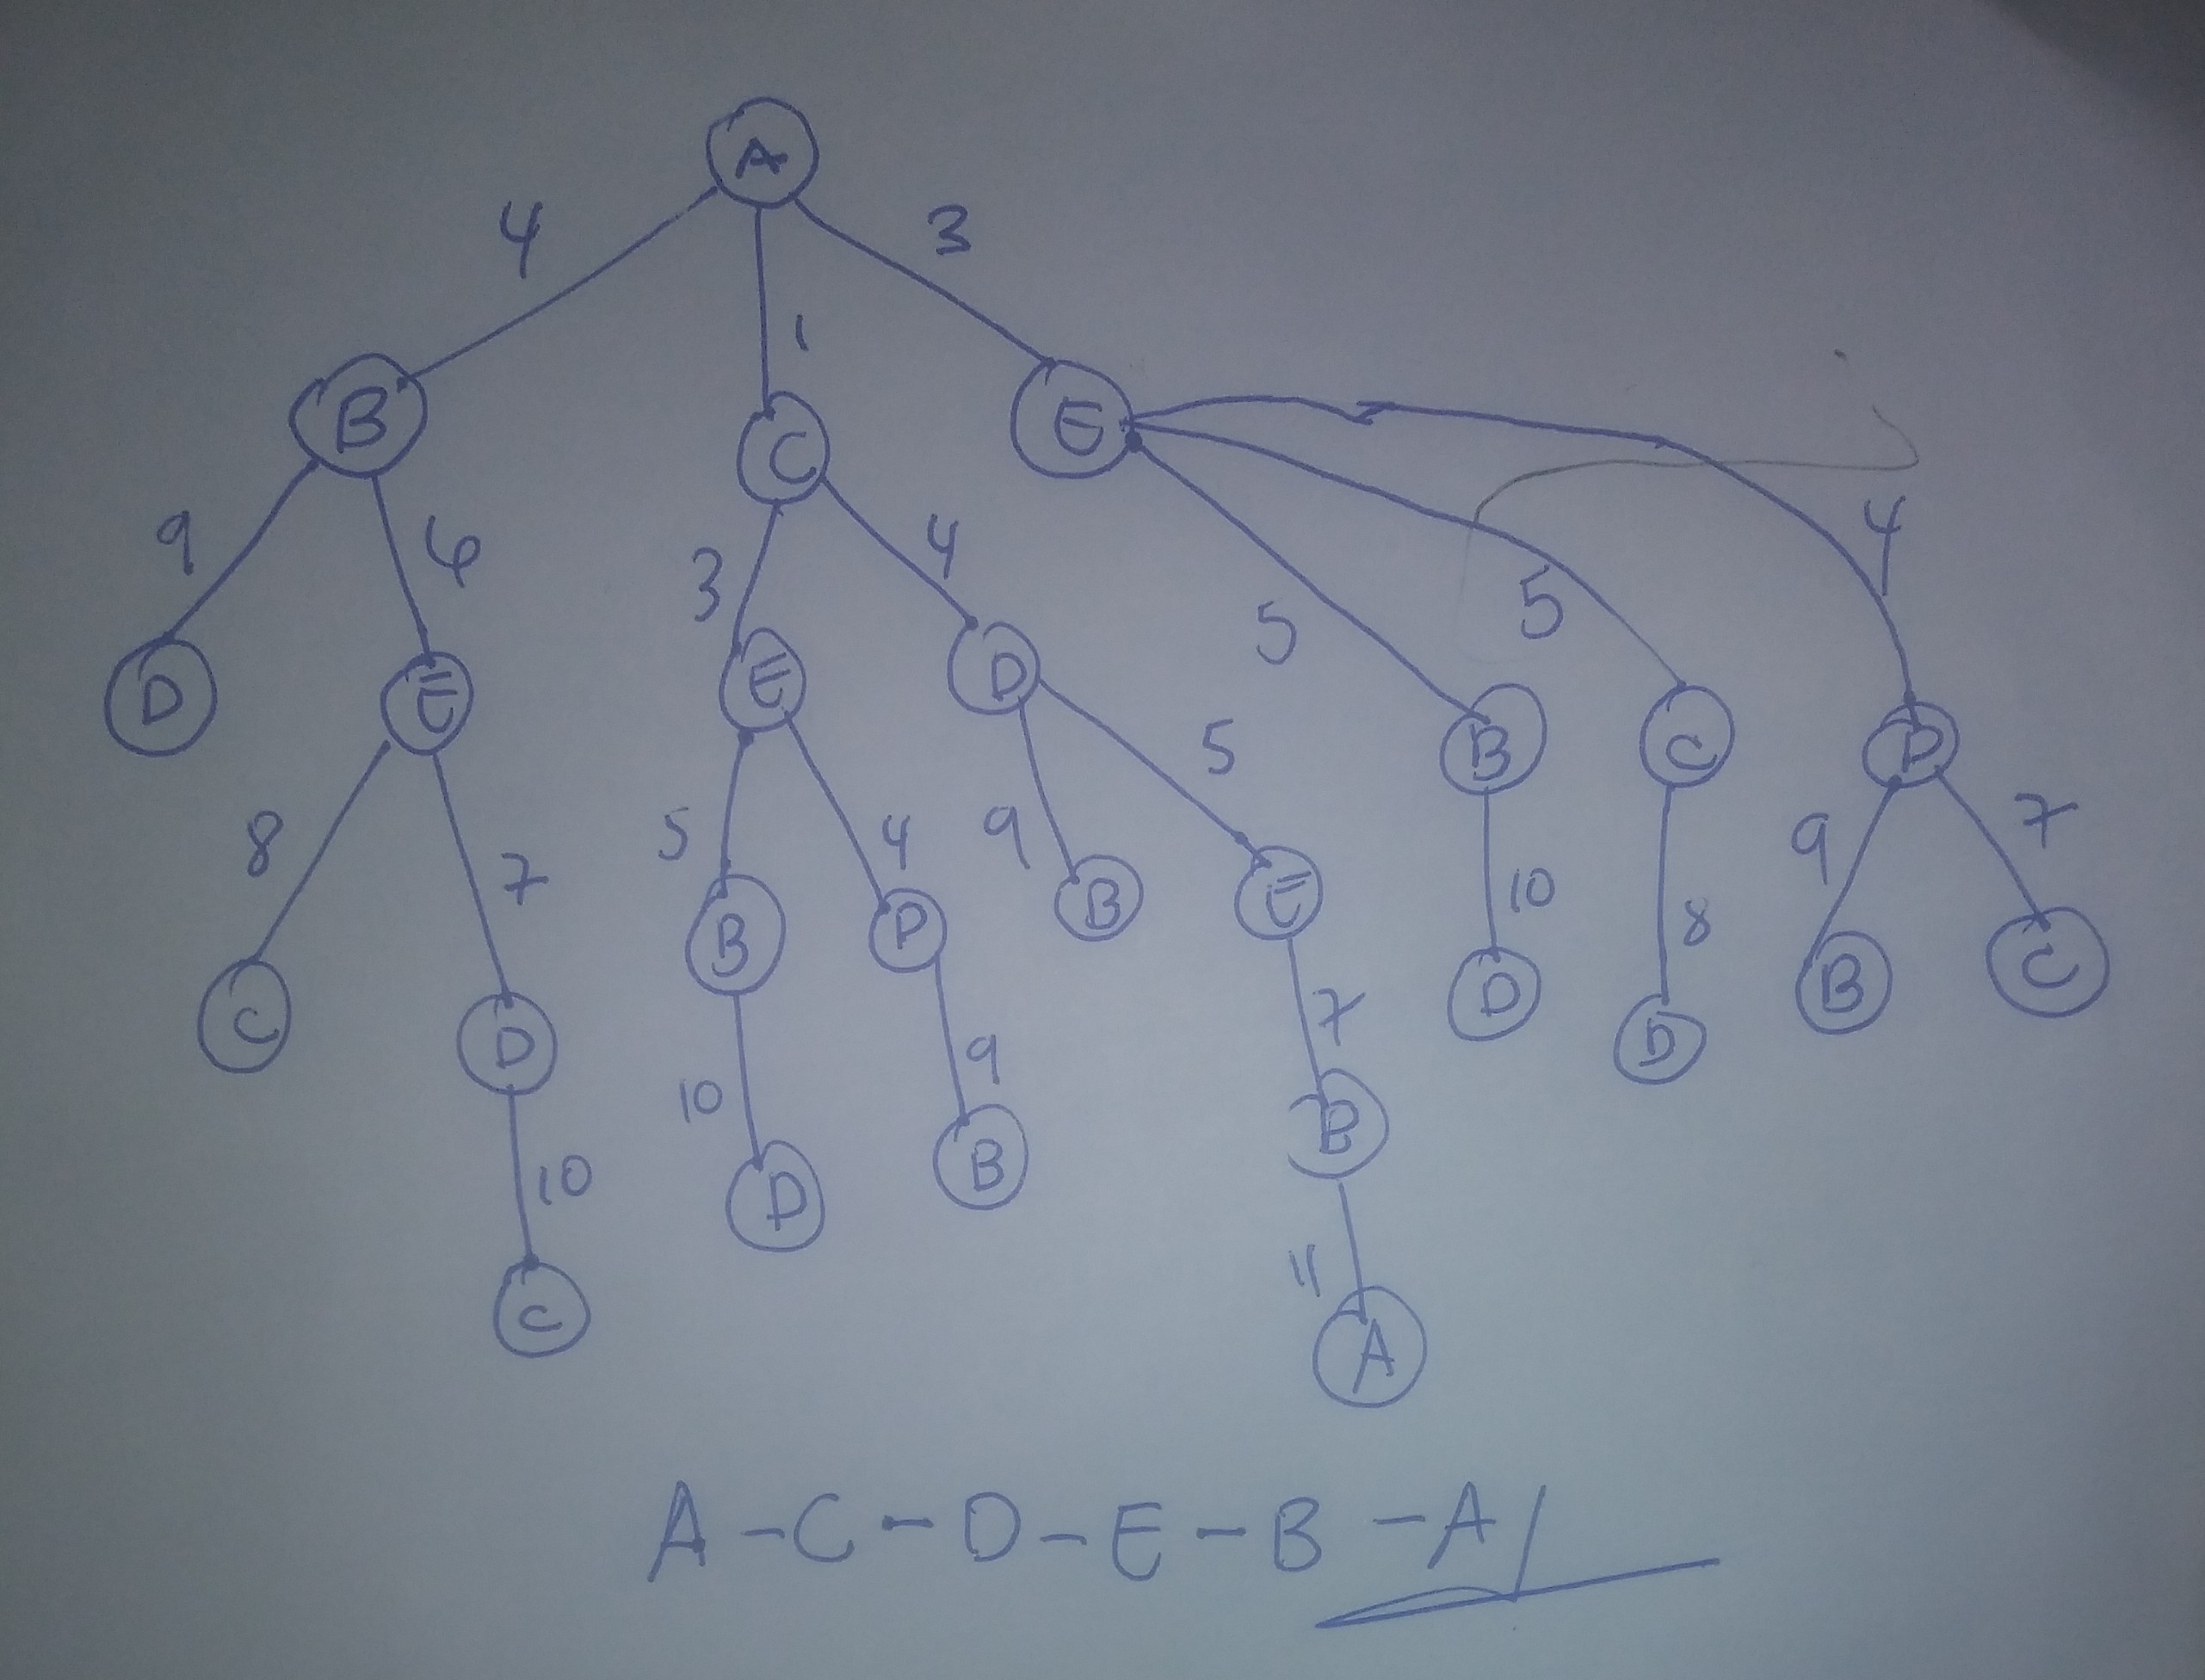 A
4
1
3
B
C
E
9
6
3
4
5
5
4
D
E
E
D
B
C
D
8
7
5
4
9
5
10
8
9
7
C
D
B
D
B
E
D
D
B
C
10
10
9
7
C
D
B
B
11
A
A - C - D - E - B - A